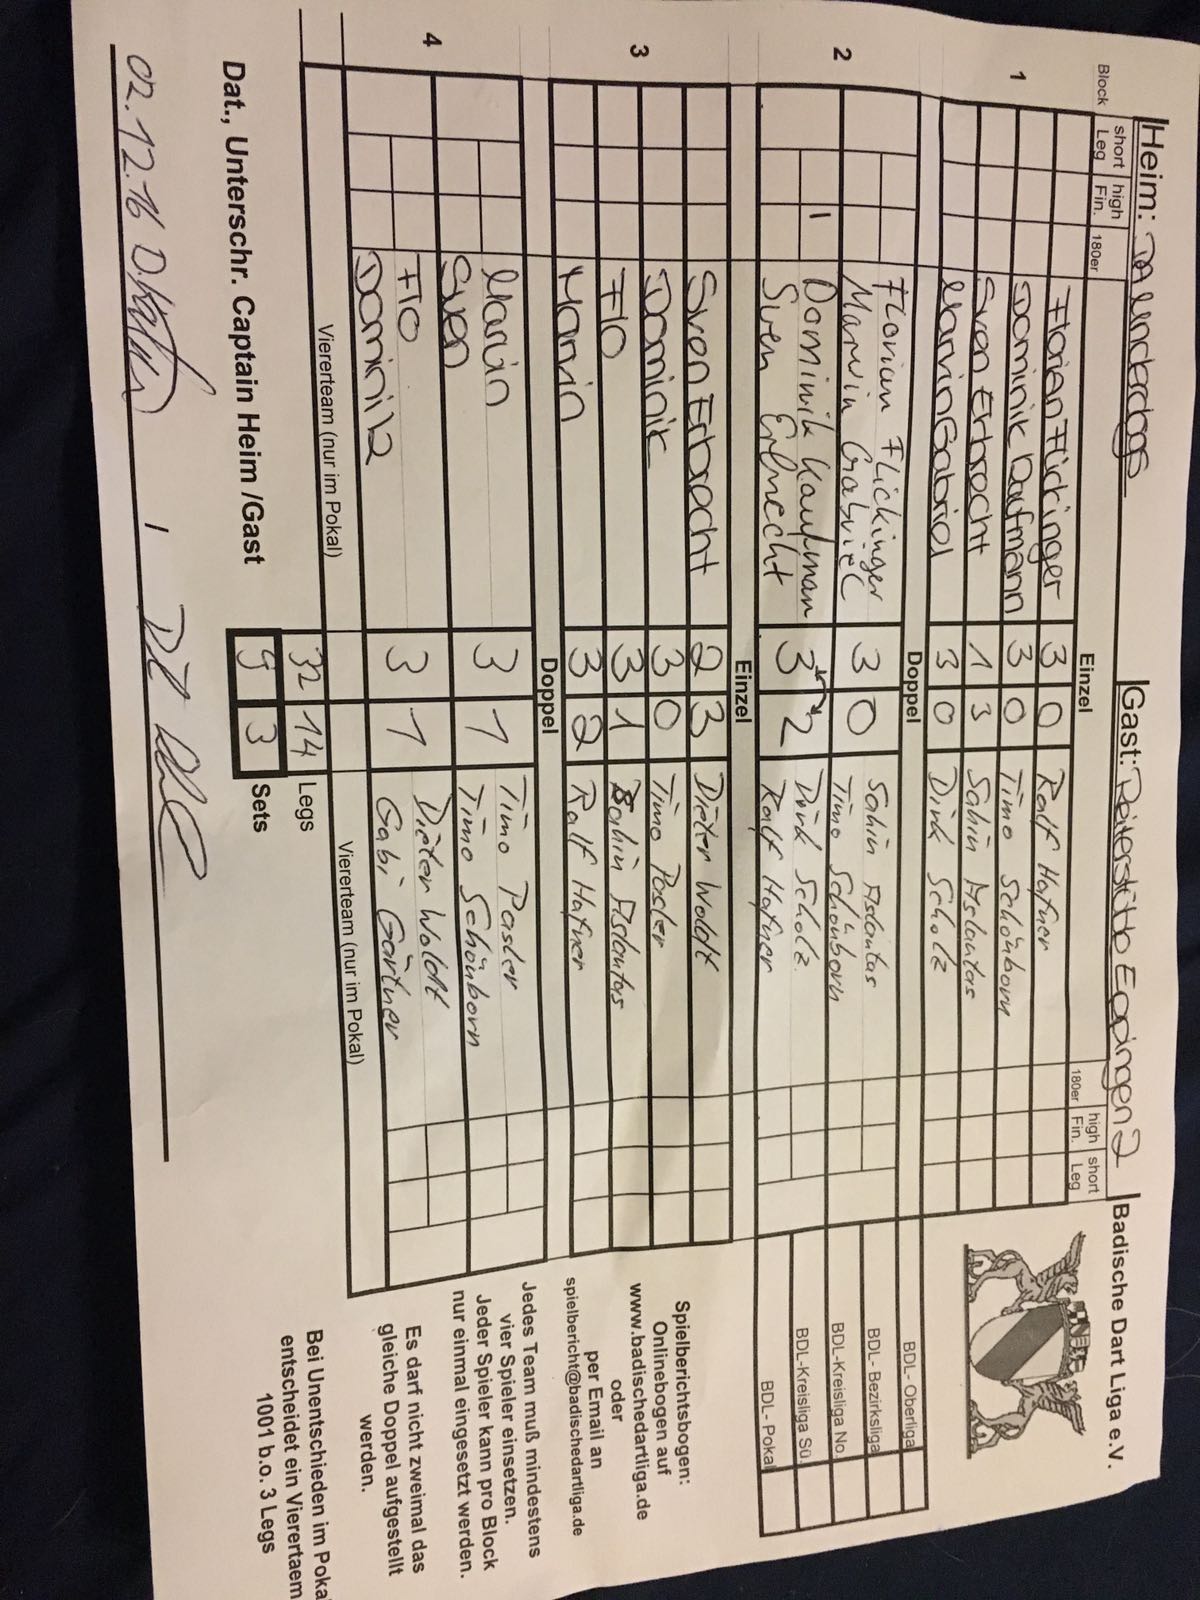 Heim: Underdogs Gast: Reiterstüble Eppingen 2 Badische Dart Liga e.V.
Block short Leg high Fin. 180er Einzel 180er high Fin. short Leg
1 Florian Flickinger 3 0 Ralf Hafner
Dominik Kaufmann 3 0 Timo Schönborn
Sven Erbrecht 1 3 Sahin Aslantas
Marvin Gabriel 3 0 Dirk Scholz
Doppel
2 Florian Flickinger 3 0 Sahin Aslantas
Marvin Gabriel Timo Schönborn
1 Dominik Kaufman 3 2 Dirk Scholz
Sven Erbrecht Ralf Hafner
Einzel
3 Sven Erbrecht 2 3 Dieter Woldt
Dominik 3 0 Timo Pasler
Flo 3 1 Sahin Aslantas
Marvin 3 2 Ralf Hafner
Doppel
4 Marvin 3 1 Timo Pasler
Sven Timo Schönborn
Flo 3 1 Dieter Woldt
Dominik Gabi Gärtner
Viererteam (nur im Pokal) Viererteam (nur im Pokal)
32 14 Legs
9 3 Sets
Dat., Unterschr. Captain Heim /Gast
02.12.16
BDL- Oberliga
BDL- Bezirksliga
BDL-Kreisliga No.
BDL-Kreisliga Sü.
BDL- Pokal
Spielberichtsbogen:
Onlinebogen auf
www.badischedartliga.de
oder
per Email an
spielbericht@badischedartliga.de
Jedes Team muß mindestens
vier Spieler einsetzen.
Jeder Spieler kann pro Block
nur einmal eingesetzt werden.
Es darf nicht zweimal das
gleiche Doppel aufgestellt
werden.
Bei Unentschieden im Poka
entscheidet ein Vierertaem
1001 b.o. 3 Legs